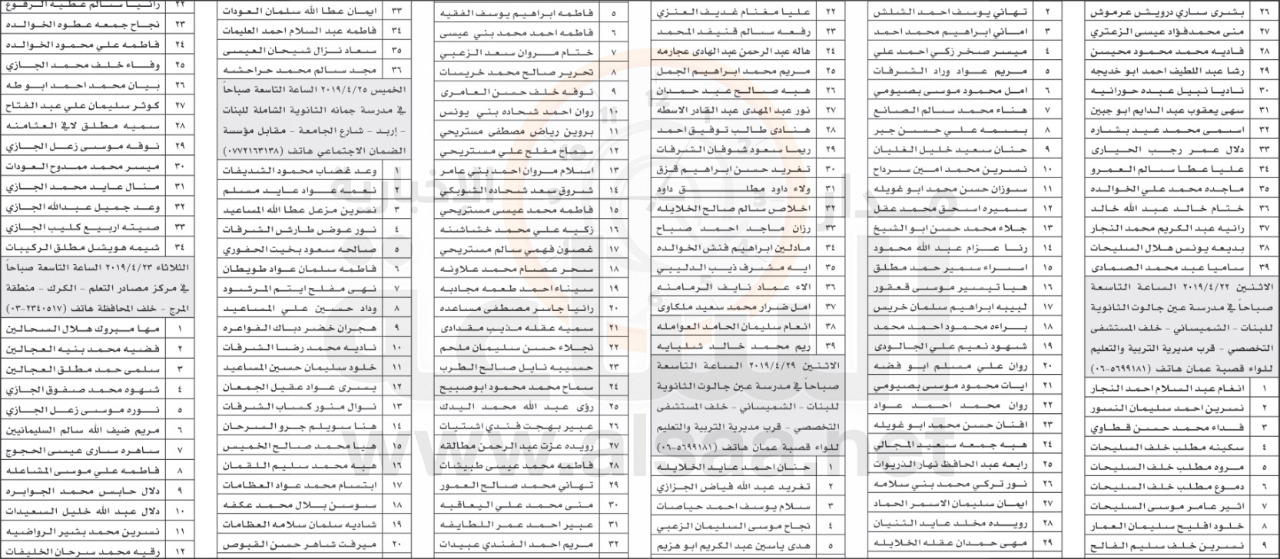 ٢٦ بشرى ساري درويش عرموش
٢٧ منى محمدفؤاد عيسى الزعتري
٢٨ فاديه محمد محمود محيسن
٢٩ رشا عبد اللطيف احمد ابو خديجه
٣٠ ناديا نبيل عبده حورانيه
٣١ سهى يعقوب عبد الدايم ابو جبين
٣٢ اسمى محمد عيد بشاره
٣٣ دلال عمر رجب الحيارى
٣٤ عليا عطا سالم العمرو
٣٥ ماجده محمد علي الخوالده
٣٦ ختام خالد عبد الله خالد
٣٧ رانيه عبد الكريم محمد النجار
٣٨ بديعه يونس هلال السليحات
٣٩ ساميا عيد محمد الصمادى
الاثنين ٢٠١٩/٤/٢٢ الساعة التاسعة
صباحاً في مدرسة عين جالوت الثانوية
للبنات - الشميساني - خلف المستشفى
التخصصي - قرب مديرية التربية والتعليم
للواء قصبة عمان هاتف (٥٦٩٩١٨١-٠٦)
١ انغام عبد السلام احمد النجار
٢ نسرين احمد سليمان النسور
٣ فداء محمد حسن قطاوي
٤ سكينه مطلب خلف السليحات
٥ مروه مطلب خلف السليحات
٦ دموع مطلب خلف السليحات
٧ اثير عامر موسى السليحات
٨ خلود افليح سليمان العمار
٩ نسرين خلف سليم الفالح
٢ تهاني يوسف احمد الشلش
٣ اماني ابراهيم محمد احمد
٤ ميسر صخر زكي احمد علي
٥ مريم عواد وراد الشرفات
٦ امل محمود موسى بصبومي
٧ هناء محمد سالم الصانع
٨ بسمه علي حسن جبر
٩ حنان سعيد خليل الغليان
١٠ نسرين محمد امين سرداح
١١ سوزان حسن محمد ابو غويله
١٢ سميره اسحق محمد عقل
١٣ جلاء محمد حسن ابو الشيخ
١٤ رنا عزام عبد الله محمود
١٥ اسراء سمير حمد مطلق
١٦ هيا تيسير موسى قعقور
١٧ لبيبه ابراهيم سلمان خريس
١٨ براءه محمود احمد محمد
١٩ شهود نعيم علي الجالودى
٢٠ روان علي مسلم ابو فضه
٢١ ايات محمود موسى بصبومي
٢٢ روان محمد احمد عواد
٢٣ افنان حسن محمد ابو غويله
٢٤ هبه جمعه سالم المجالي
٢٥ رابعه عبد الحافظ نهار الذريوات
٢٦ نور تركي محمد بني سلامه
٢٧ ايمان سليمان الاسمر الحماد
٢٨ رويده مخلد عايد الثنيان
٢٩ مهى حمدان عقله الخلايله
٢٢ عليا مغنام غديف العنزي
٢٣ رفعه سالم قنيفد المحمد
٢٤ هاله عبد الرحمن عبد الهادى عجارمه
٢٥ مريم محمد ابراهيم الجمل
٢٦ هبه صالح عبد حمدان
٢٧ نور عبد المهدى عبد القادر الاسطه
٢٨ هنادى طالب توفيق احمد
٢٩ ريما سعود شوفان الشرفات
٣٠ تغريد حسن ابراهيم قزق
٣١ ولاء داود مطلق داود
٣٢ اخلاص سالم صالح الخلايله
٣٣ رزان ماجد احمد صباح
٣٤ مادلين ابراهيم فنش الخوالده
٣٥ ايه مشرف ذيب الدليبي
٣٦ الاء عماد نايف الرمامنه
٣٧ امل ضرار محمد سعيد ملكاوى
٣٨ انعام سليمان الحامد العوامله
٣٩ ريم محمد خالد شلبايه
الاثنين ٢٠١٩/٤/٢٩ الساعة التاسعة
صباحاً في مدرسة عين جالوت الثانوية
للبنات - الشميساني - خلف المستشفى
التخصصي - قرب مديرية التربية والتعليم
للواء قصبة عمان هاتف (٥٦٩٩١٨١-٠٦)
١ حنان احمد عايد الخلايله
٢ تغريد عبد الله فياض الجزازي
٣ سلام يوسف احمد حياصات
٤ نجاح موسى السليمان الزعبي
٥ هدى ياسين عبد الكريم ابو هزيم
٥ فاطمه ابراهيم يوسف الفقيه
٦ فاطمه احمد محمد بني عيسى
٧ ختام مروان سعد الزعبي
٨ تحرير صالح محمد خريسات
٩ نوفه خلف حسن العامرى
١٠ روان احمد شحاده بني يونس
١١ بروين رياض مصطفى مستريحي
١٢ سماح مفلح علي مستريحي
١٣ اسلام مروان احمد بني عامر
١٤ شروق سعد شحاده الشوبكي
١٥ فاطمه محمد عيسى مستريحي
١٦ زكيه علي محمد خشاشنه
١٧ غصون فهمي سالم مستريحي
١٨ سحر عصام محمد علاونه
١٩ ايناس احمد طعمه مجادبه
٢٠ رانيا جاسر مصطفى مساعده
٢١ سميه عقله مذيب مقدادى
٢٢ نجلاء حسن سليمان ملحم
٢٣ حسيبه نايل صالح الطرب
٢٤ سماح محمد محمود ابوصبيح
٢٥ رؤى عبد الله محمد اليدك
٢٦ عبير بهجت فندي اشتيات
٢٧ رويده عزت عبد الرحمن مطالقه
٢٨ فاطمه محمد عيسى طبيشات
٢٩ تهاني محمد صالح العمور
٣٠ منى محمد علي اليعاقبه
٣١ عبير احمد عمر اللطايفه
٣٢ مريم احمد الفندي عبيدات
٣٣ ايمان عطا الله سلمان العودات
٣٤ فاطمه عبد السلام احمد العليمات
٣٥ سعاد نزال شيحان العيسى
٣٦ مجد سالم محمد حراحشه
الخميس ٢٠١٩/٤/٢٥ الساعة التاسعة صباحاً
في مدرسة جمانه الثانوية الشاملة للبنات
- إربد - شارع الجامعة - مقابل مؤسسة
الضمان الاجتماعي هاتف (٠٧٧٢١٦٣١٣٨)
١ وعد غصاب محمود الشديفات
٢ نعمه عواد عايد مسلم
٣ نسرين مزعل عطا الله المساعيد
٤ نور عوض طارش الشرفات
٥ صالحه سعود بخيت الحفورى
٦ فاطمه سلمان عواد طويطان
٧ نهى مفلح ايتم المرشود
٨ وداد حسين علي المساعيد
٩ هجران خضير دباك الفواعره
١٠ ناديه محمد رضا الشرفات
١١ خلود سليمان حسين المساعيد
١٢ يسرى عواد عقيل الجمعان
١٣ نوال منور كساب الشرفات
١٤ هنا سويلم جرو السرحان
١٥ دينا محمد صالح الخميس
١٦ هبه محمد سليم اللقمان
١٧ ابتسام محمد عواد العظامات
١٨ سوسن بلال محمد عكفه
١٩ شاديه سلمان سلامه العظامات
٢٠ ميرفت شاهر حسن القبوص
٢٢ رانيا سالم عطيه الرفوع
٢٣ نجاح جمعه عطوه الخوالده
٢٤ فاطمه علي محمود الخوالده
٢٥ وفاء خلف محمد الجازي
٢٦ بيان محمد احمد ابو طه
٢٧ كوثر سليمان علي عبد الفتاح
٢٨ سميه مطلق لافي العثامنه
٢٩ نوفه موسى زعل الجازي
٣٠ ميسر محمد ممدوح العودات
٣١ منال عايد محمد الجازي
٣٢ وعد جميل عبدالله الجازي
٣٣ صبيته اربيع كليب الجازي
٣٤ شيمه هويشل مطلق الركيبات
الثلاثاء ٢٠١٩/٤/٢٣ الساعة التاسعة صباحاً
في مركز مصادر التعلم - الكرك - منطقة
المرج - خلف المحافظة هاتف (٢٣٤٠٥١٧-٠٣)
١ مها مبروك هلال السحالين
٢ فضيه محمد بنيه العجالين
٣ سلمى حمد مطلق العجالين
٤ شهوه محمد صفوق الجازي
٥ نوره موسى زعل الجازي
٦ مريم ضيف الله سالم السليمانيين
٧ ساهره سارى عيسى الحجوج
٨ فاطمه علي موسى المشاعله
٩ دلال حابس محمد الجوابره
١٠ دلال عبد الله خليل السعيدات
١١ نسرين محمد بشير الرواضيه
١٢ رقيه محمد سرحان الخليفات
مدار الساعة الإخبارية
www.alsaa.net